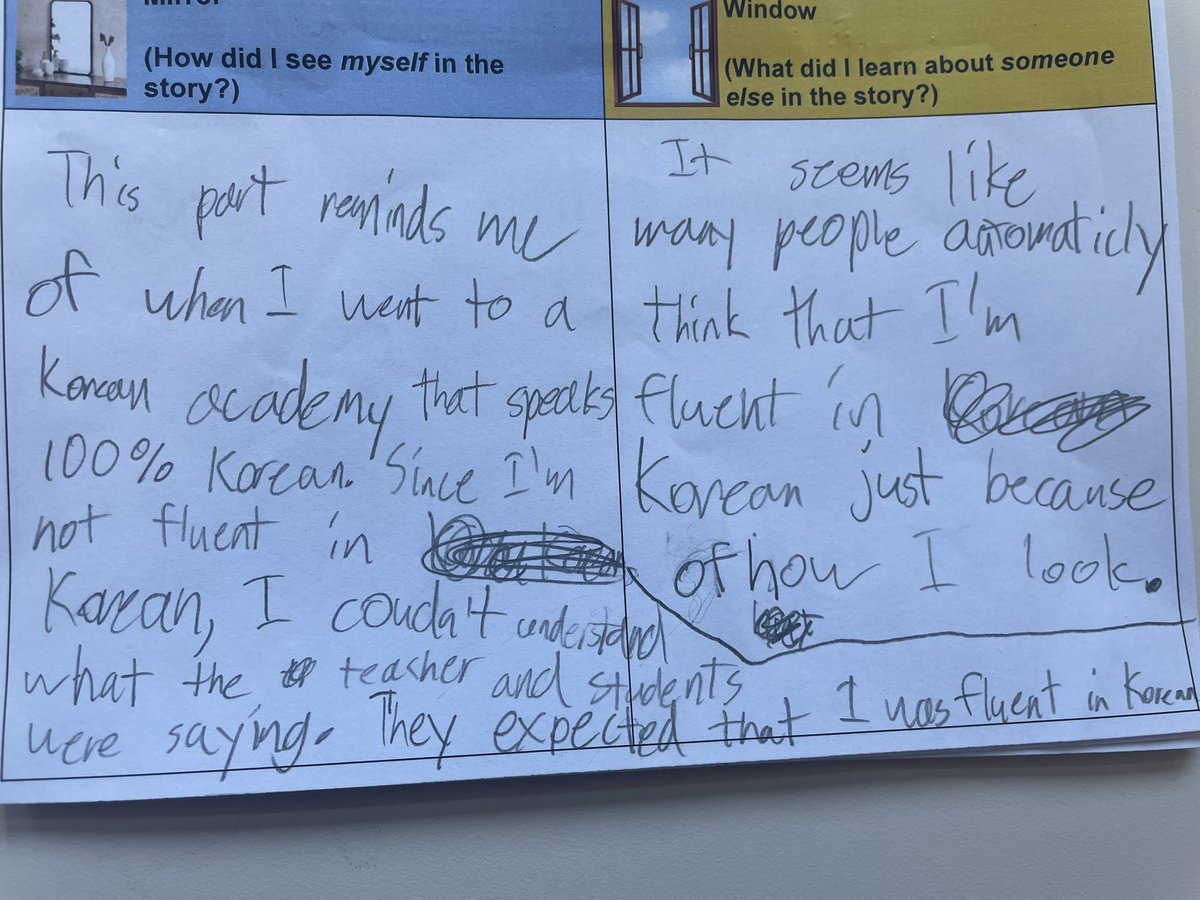 Mirror
(How did I see myself in the
story?)
This part reminds me
of when I went to a
Korean academy that speaks
100% Korean. Since I'm
not fluent in
Korean, I couda't understand
what the teacher and students
were saying. They expected that I was fluent in Korean
Window
(What did I learn about someone
else in the story?)
It seems like
many people automaticly
think that I'm
fluent in
Korean just because
of how I look.